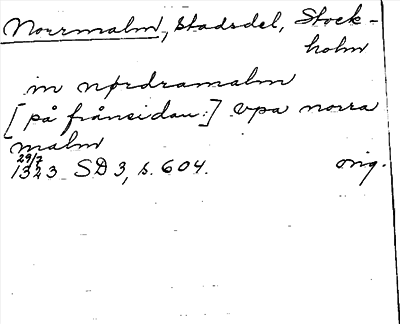 Norrmalm, stadsdel, Stock-
holm
in nørdramalm
[på frånsidan:] vpa norra
malm
29/7
1323 SD 3, s. 604. orig.